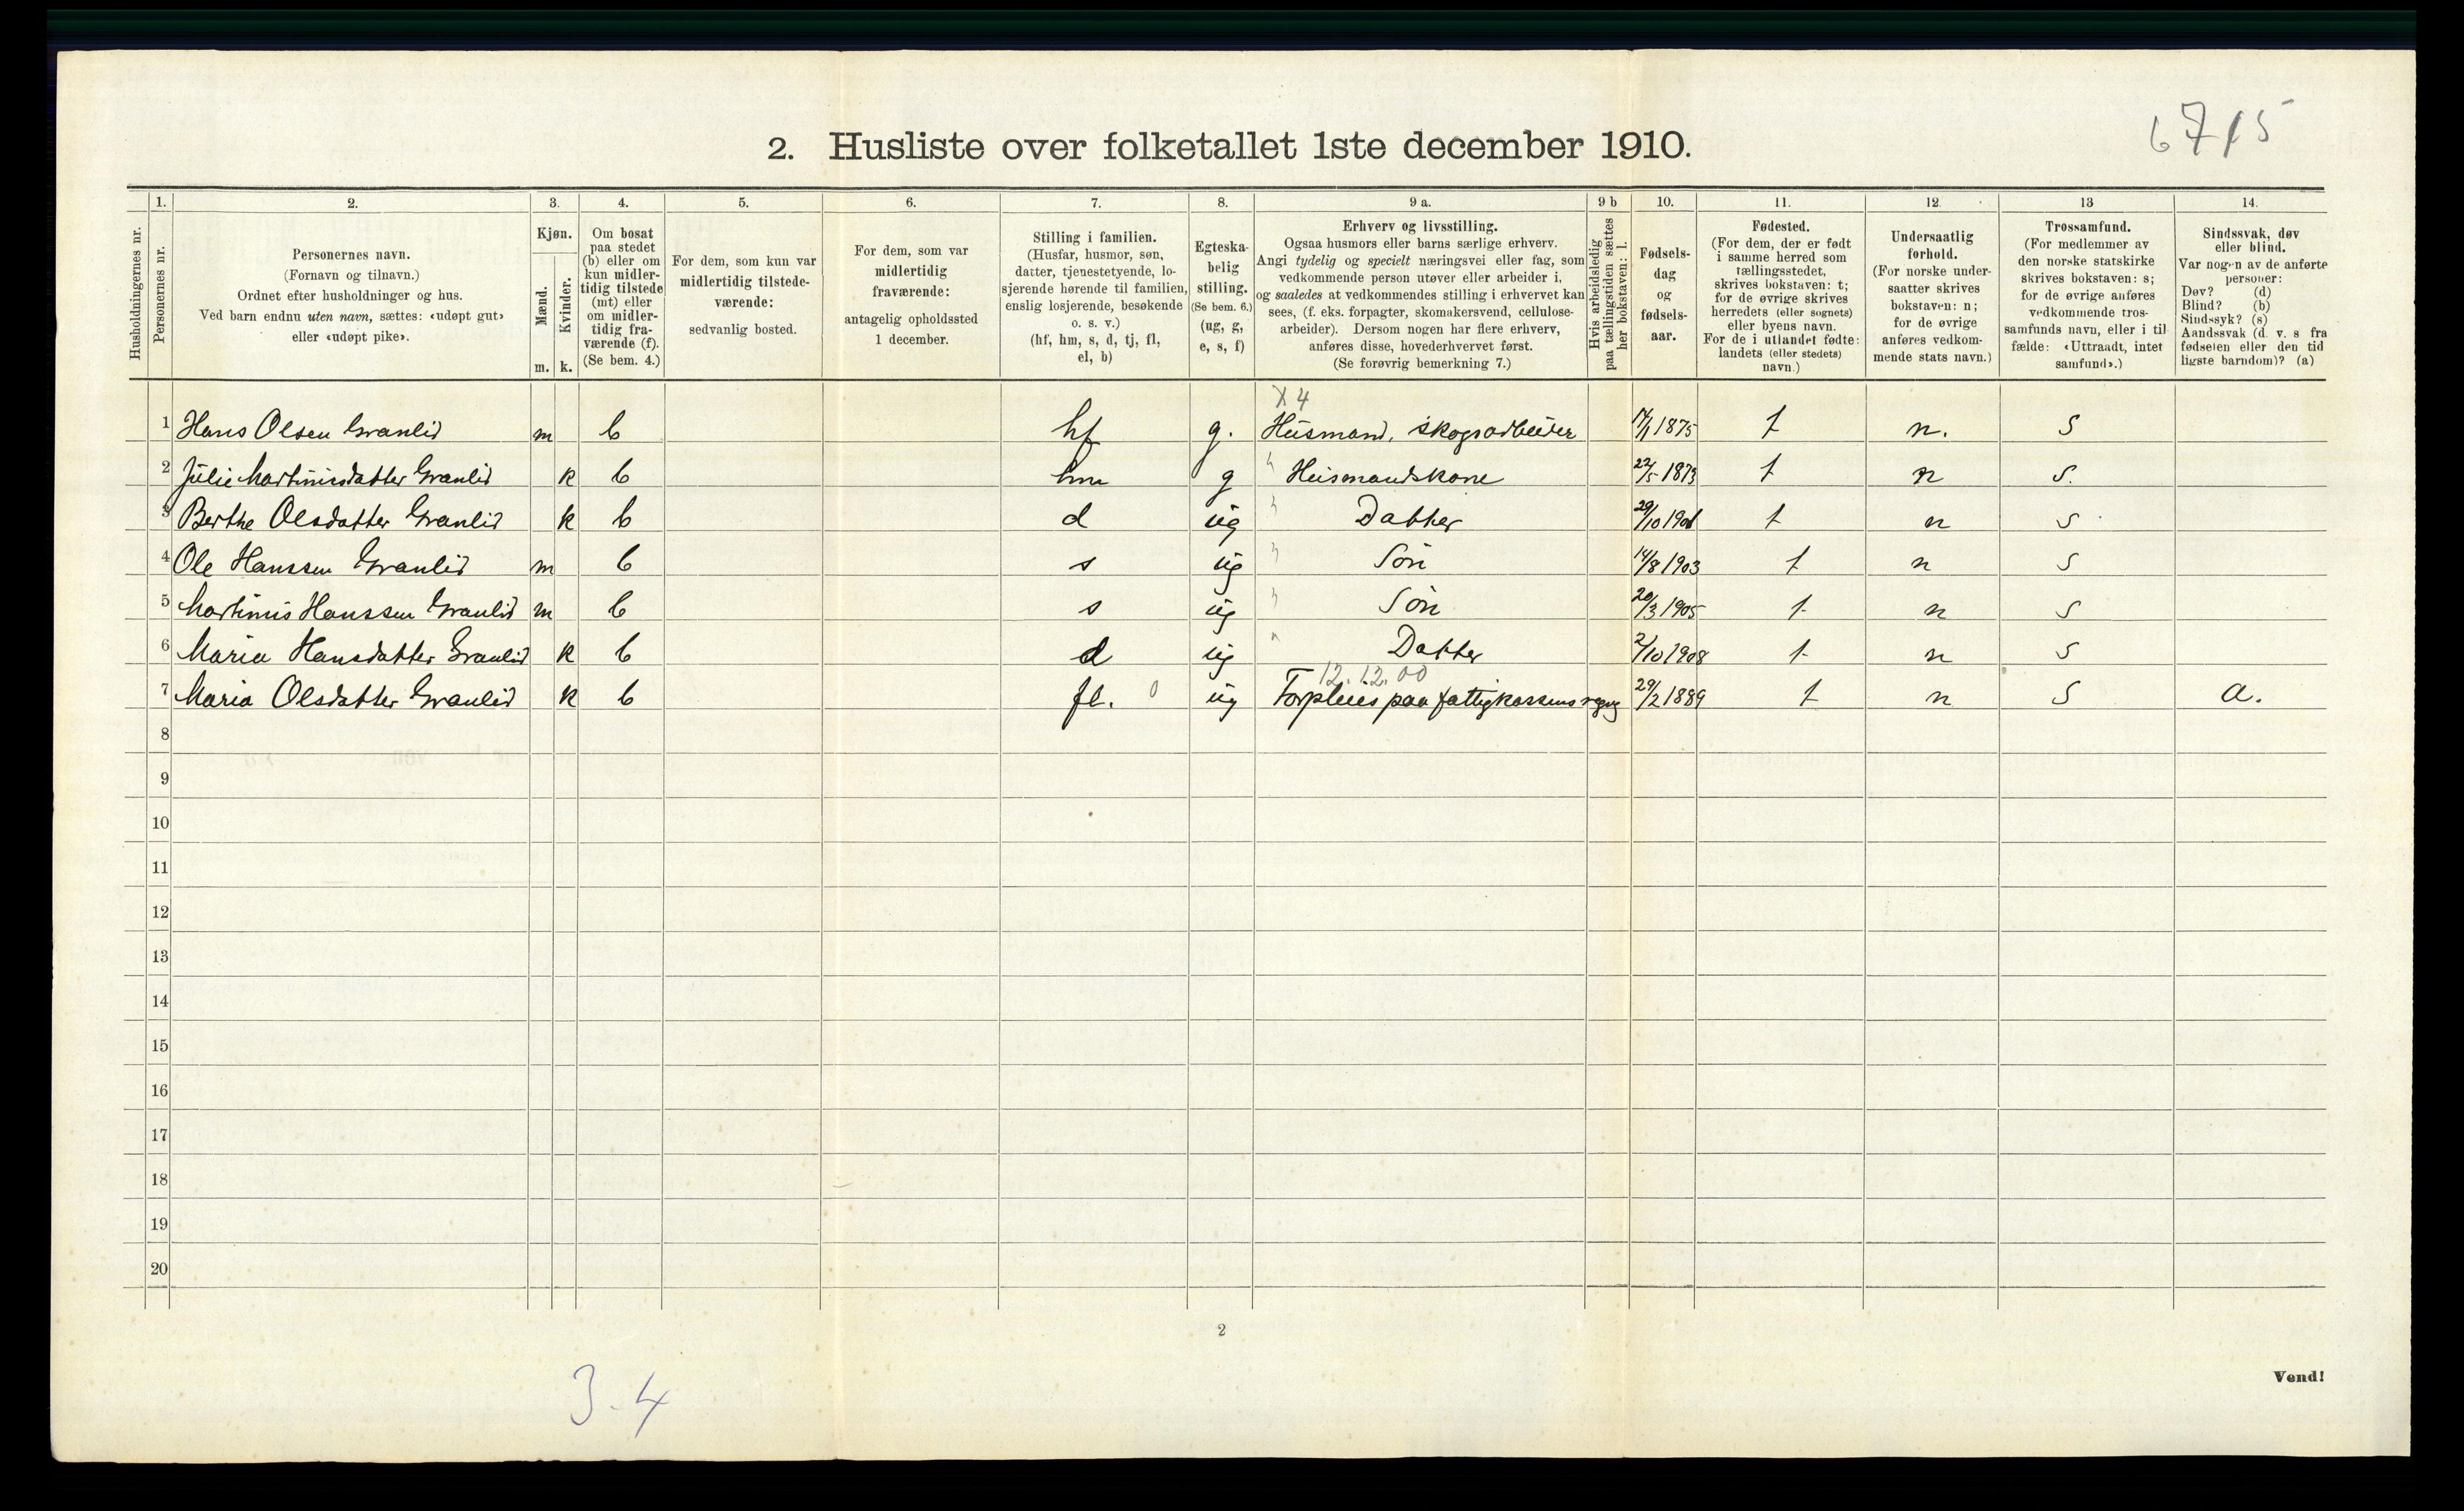 6715
2. Husliste over folketallet 1ste december 1910.
Husholdningernes nr.
1. Personernes nr.
2. Personernes navn.
(Fornavn og tilnavn.)
Ordnet efter husholdninger og hus.
Ved barn endnu uten navn, sættes: «udøpt gut»
eller «udøpt pike».
3. Kjøn.
Mænd. m.
Kvinder. k.
4. Om bosat
paa stedet
(b) eller om
kun midler-
tidig tilstede
(mt) eller
om midler-
tidig fra-
værende (f).
(Se bem. 4.)
5. For dem, som kun var
midlertidig tilstede-
værende:
sedvanlig bosted.
6. For dem, som var
midlertidig
fraværende:
antagelig opholdssted
1 december.
7. Stilling i familien.
(Husfar, husmor, søn,
datter, tjenestetyende, lo-
sjerende hørende til familien,
enslig losjerende, besøkende
o. s. v.)
(hf, hm, s, d, tj, fl,
el, b)
8. Egteska-
belig
stilling.
(Se bem. 6.)
(ug, g,
e, s, f)
9 a. Erhverv og livsstilling.
Ogsaa husmors eller barns særlige erhverv.
Angi tydelig og specielt næringsvei eller fag, som
vedkommende person utøver eller arbeider i,
og saaledes at vedkommendes stilling i erhvervet kan
sees, (f. eks. forpagter, skomakersvend, cellulose-
arbeider). Dersom nogen har flere erhverv,
anføres disse, hovederhvervet først.
(Se forøvrig bemerkning 7.)
9 b Hvis arbeidsledig
paa tællingstiden sættes
her bokstaven: l.
10. Fødsels-
dag
og
fødsels-
aar.
11. Fødested.
(For dem, der er født
i samme herred som
tællingsstedet,
skrives bokstaven: t;
for de øvrige skrives
herredets (eller sognets)
eller byens navn.
For de i utlandet fødte:
landets (eller stedets)
navn.)
12. Undersaatlig
forhold.
(For norske under-
saatter skrives
bokstaven: n;
for de øvrige
anføres vedkom-
mende stats navn.)
13 Trossamfund.
(For medlemmer av
den norske statskirke
skrives bokstaven: s;
for de øvrige anføres
vedkommende tros-
samfunds navn, eller i til
fælde: «Uttraadt, intet
samfund».)
14. Sindssvak, døv
eller blind.
Var nogen av de anførte
personer:
Døv? (d)
Blind? (b)
Sindssyk? (s)
Aandssvak (d. v. s fra
fødselen eller den tid
ligste barndom)? (a)
X 4
1 Hans Olsen Granlid m b hf g. Husmand, skogsarbeider 17/1 1875 t n. s
2 Julie Martinusdatter Granlid k b hm g " Husmandskone 22/5 1873 t n s.
3 Berthe Olsdatter Granlid k b d ug " Datter 29/10 1901 t n s
4 Ole Hanssen Granlid m b s ug " Søn 14/8 1903 t n s
5 Martinus Hanssen Granlid m b s ug " Søn 20/3 1905 t n s
6 Maria Hansdatter Granlid k b d ug " Datter 2/10 1908 t n s
12.12.00
7 Maria Olsdatter Granlid k b fl. 0 ug Forpleies paa fattigkassens regng 29/2 1889 t n s a.
8
9
10
11
12
13
14
15
16
17
18
19
20
2
Vend!
3-4